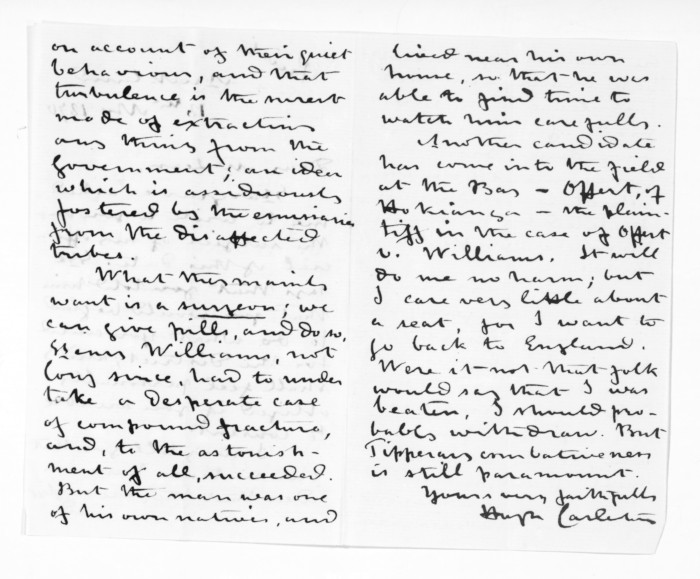 on account of their quiet
behaviour, and that
turbulence is the surest
mode of extracting
any thing from the
government; an idea
which is assiduously
fostered by the emissaries
from the disaffected
tribes.
What they mainly
want is a surgeon; we
can give pills, and do so,
Henry Williams, not
long since, had to under
take a desperate case
of compound fracture,
and, to the astonish-
ment of all, succeeded.
But the man was one
of his own natives, and
lived near his own
house, so that he was
able to find time to
watch him carefully.
Another candidate
has come into the field
at the Bay – Offert, of
Hokianga – the plain-
tiff in the case of Offert
v. Williams. It will
do me no harm; but
I care very little about
a seat, for I want to
go back to England.
Were it not that folk
would say that I was
beaten, I should pro-
bably withdraw. But
Tipperary combativeness
is still paramount.
Yours very faithfully
Hugh Carleton